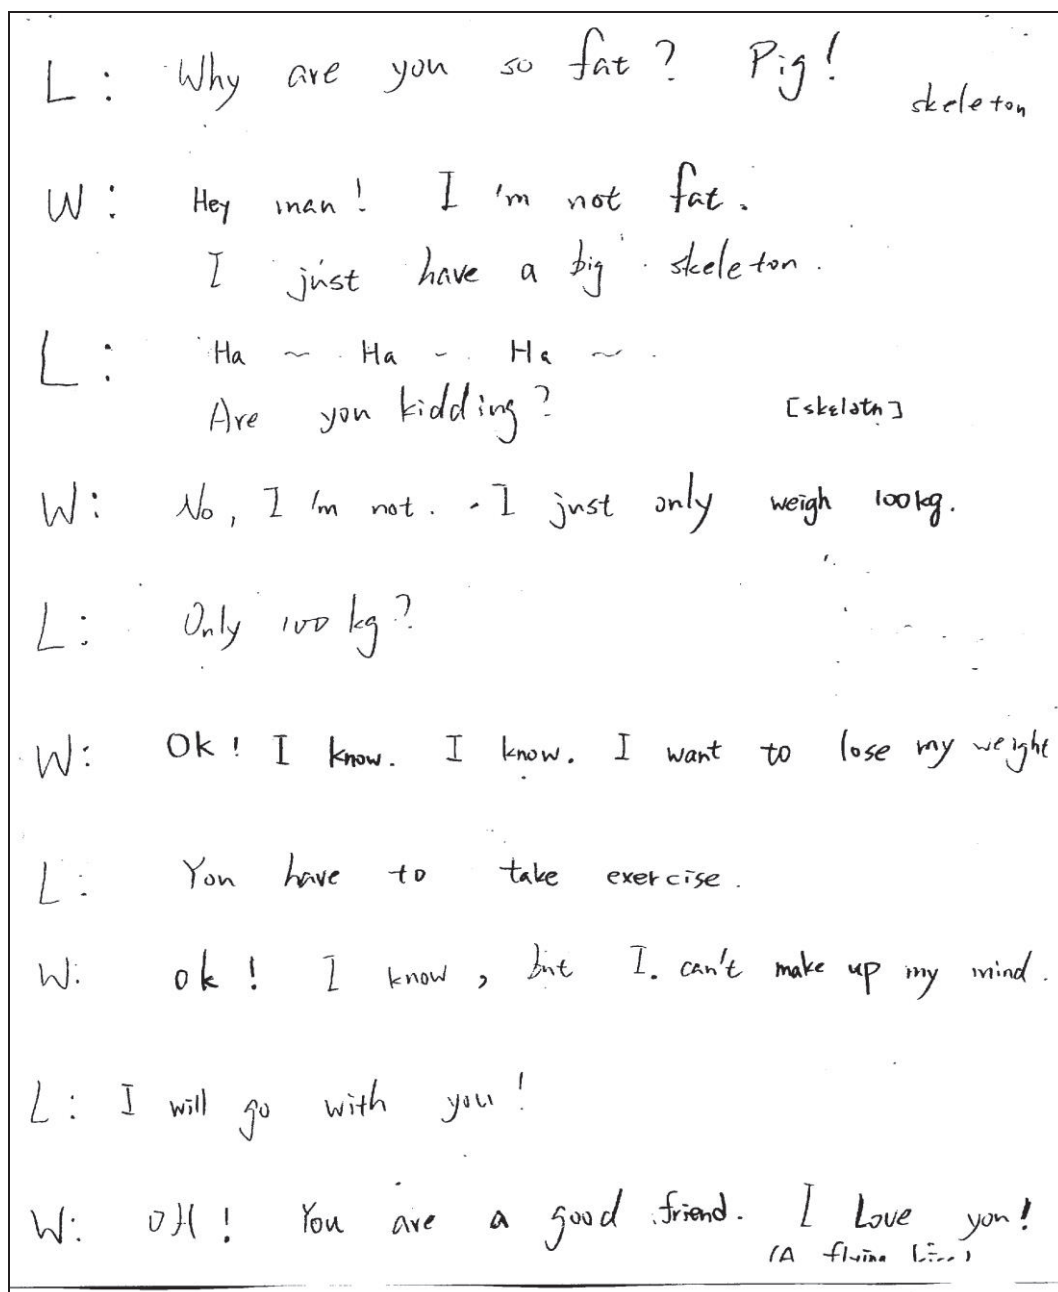 L: Why are you so fat? Pig!
skeleton
W: Hey man! I'm not fat.
I just have a big skeleton.
L: Ha ~ Ha - Ha ~
Are you kidding?
[skɛlətn]
W: No, I'm not. I just only weigh 100kg.
L: Only 100 kg?
W: Ok! I know. I know. I want to lose my weight
L: You have to take exercise.
W: ok! I know, but I can't make up my mind.
L: I will go with you!
W: OH! You are a good friend. I Love you!
(A